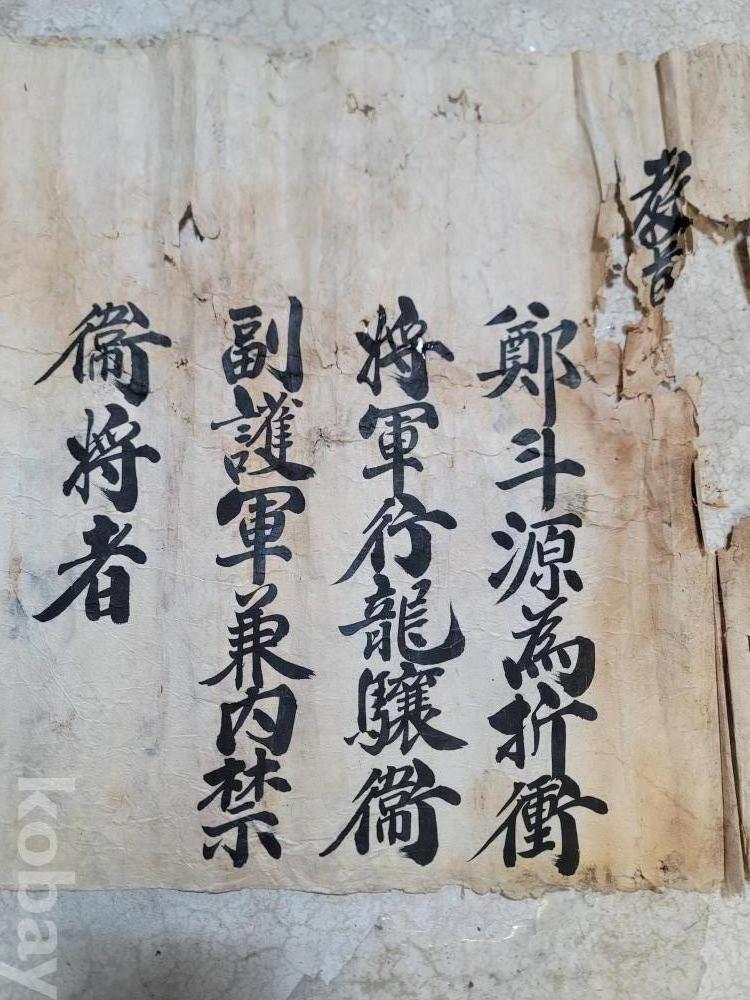 教旨
鄭斗源為折衝
将軍行龍驤衛
副護軍兼內禁
衛将者
kobay